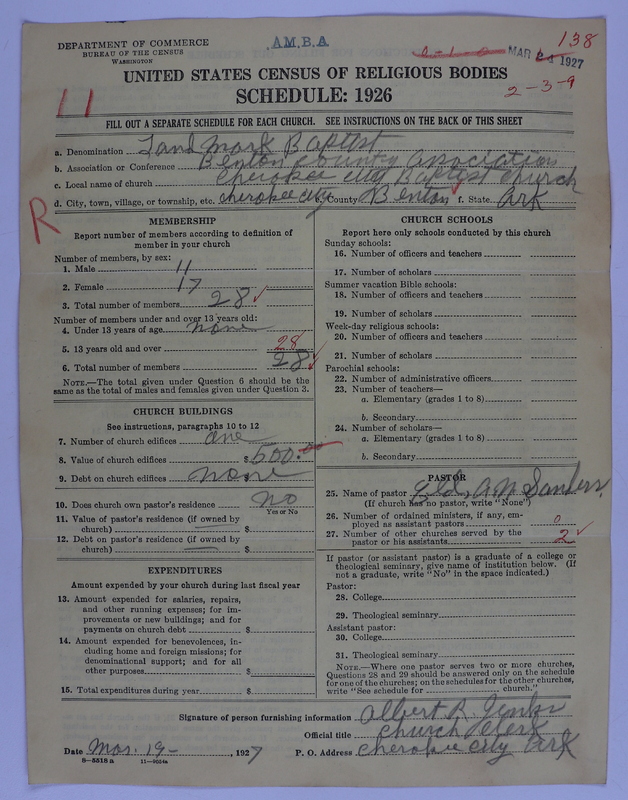 A.M.B.A.
DEPARTMENT OF COMMERCE
BUREAU OF THE CENSUS
WASHINGTON
138
MAR 24 1927
2-3-9
UNITED STATES CENSUS OF RELIGIOUS BODIES
SCHEDULE: 1926
11
FILL OUT A SEPARATE SCHEDULE FOR EACH CHURCH. SEE INSTRUCTIONS ON THE BACK OF THIS SHEET
a. Denomination Land Mark Baptist
b. Association or Conference Benton County Association
c. Local name of church Cherokee City Baptist Church
d. City, town, village, or township, etc. Cherokee City e. County Benton f. State Ark
R
MEMBERSHIP
Report number of members according to definition of
member in your church
Number of members, by sex:
1. Male 11
2. Female 17
3. Total number of members 28
Number of members under and over 13 years old:
4. Under 13 years of age none
5. 13 years old and over 28
6. Total number of members 28
NOTE.—The total given under Question 6 should be the
same as the total of males and females given under Question 3.
CHURCH BUILDINGS
See instructions, paragraphs 10 to 12
7. Number of church edifices one
8. Value of church edifices $ 500.00
9. Debt on church edifices none
10. Does church own pastor's residence no
Yes or No
11. Value of pastor's residence (if owned by
church) $
12. Debt on pastor's residence (if owned by
church) $
EXPENDITURES
Amount expended by your church during last fiscal year
13. Amount expended for salaries, repairs,
and other running expenses; for im-
provements or new buildings; and for
payments on church debt $
14. Amount expended for benevolences, in-
cluding home and foreign missions; for
denominational support; and for all
other purposes $
15. Total expenditures during year $
CHURCH SCHOOLS
Report here only schools conducted by this church
Sunday schools:
16. Number of officers and teachers
17. Number of scholars
Summer vacation Bible schools:
18. Number of officers and teachers
19. Number of scholars
Week-day religious schools:
20. Number of officers and teachers
21. Number of scholars
Parochial schools:
22. Number of administrative officers
23. Number of teachers—
a. Elementary (grades 1 to 8)
b. Secondary
24. Number of scholars—
a. Elementary (grades 1 to 8)
b. Secondary
PASTOR
25. Name of pastor Eld, A M Sanders
(If church has no pastor, write "None")
26. Number of ordained ministers, if any, em-
ployed as assistant pastors 0
27. Number of other churches served by the
pastor or his assistants 2
If pastor (or assistant pastor) is a graduate of a college or
theological seminary, give name of institution below. (If
not a graduate, write "No" in the space indicated.)
Pastor:
28. College
29. Theological seminary
Assistant pastor:
30. College
31. Theological seminary
NOTE.—Where one pastor serves two or more churches,
Questions 28 and 29 should be answered only on the schedule
for one of the churches; on the schedules for the other churches,
write "See schedule for church."
Signature of person furnishing information Albert R. Jenks
Official title Church Clerk
Date Mar. 19 - , 1927 P. O. Address Cherokee City Ark
8—5518 a 11—9524a